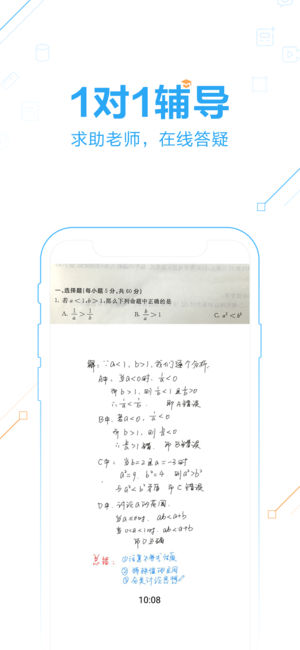 1对1辅导
求助老师，在线答疑
一、选择题(每小题5分,共60分)
1. 若a<1,b>1,那么下列命题中正确的是
A. 1/a > 1/b B. b/a > 1 C. a²<b²
解：∵a<1, b>1, 我们逐个分析.
A中：当a<0时. 1/a<0
而b>1, 则 1/b<1且1/b>0
∴ 1/a<1/b. 即A错误
B中. 若a<0, 1/a<0
而b>1, 则 b/a<0
∴ b/a>1错. 即B错误
C中：当b=2且a=-3时
a²=9, b²=4 则a²>b²
与a²<b²矛盾 即C错误
D中. 讨论a的范围.
当a<0时. ab<a+b
当0<a<1时. ab<a+b
即D正确
总结：①注意不等式性质
②特殊值的运用
③分类讨论思想
10:08